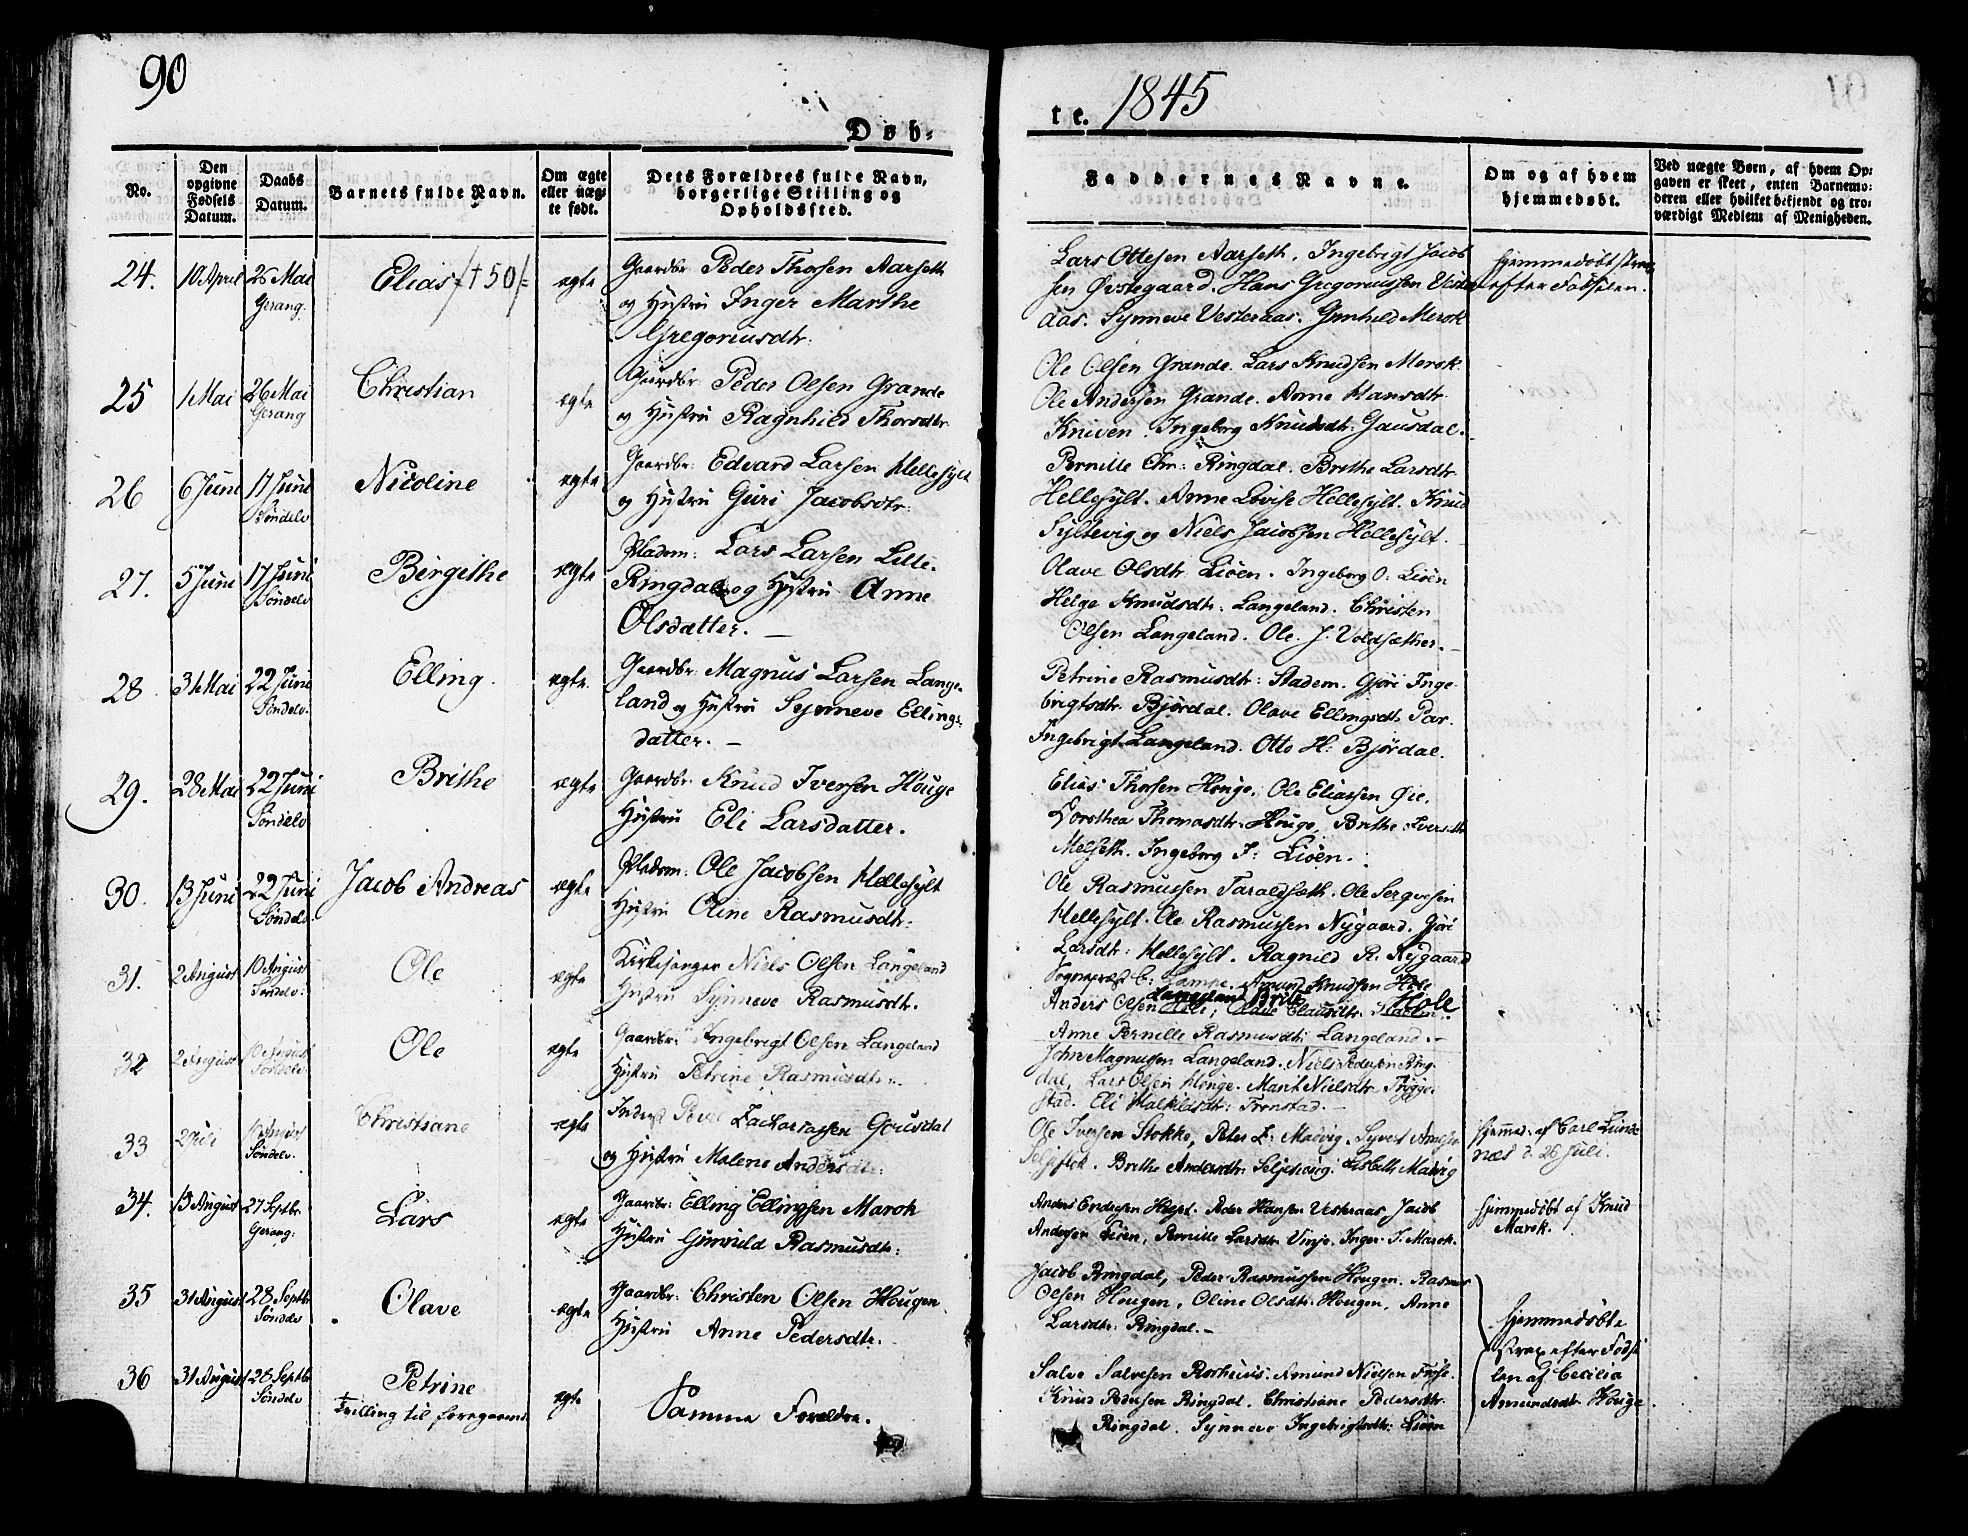 90
Døb-
te. 1845
No.
Den opgivne Fødsels Datum.
Daabs Datum.
Barnets fulde Navn.
Om ægte eller uæg-
te født.
Dets Forældres fulde Navn,
borgerlige Stilling og
Opholdssted.
Faddernes Navne.
Om og af hvem
hjemmedøbt.
Ved uægte Børn, af hvem Op-
gaven er skeet, enten Barnemo-
deren eller hvilket bekjendt og tro-
værdigt Medlem af Menigheden.
24. 10 April 26 Mai Gerang. Elias /†50/= ægte
Gaardbr. Peder Thorsen Aarseth
og Hustru Inger Marthe
Gregoriusdtr:
Lars Ottesen Aarseth. Ingebrigt Jacob
sen Øvstegaard. Hans Gregoriussen Vester
aas. Synneve Vesteraas. Gunhild Merok
hjemmedøbt strax
efter Fødselen.
25 1 Mai 26 Mai Gerang Christian ægte
Gaardbr. Peder Olsen Grande
og Hustru Ragnhild Thorsdtr.
Ole Olsen Grande. Lars Knudsen Merok.
Ole Andersen Grande. Anne Hansdtr.
Kniven. Ingeborg Knudsdtr: Gausdal.
26 6 Juni 17 Juni Søndelv Nicoline ægte
Gaardbr. Edvard Larsen Hellesylt
og Hustru Guri Jacobsdtr:
Pernille Chr: Ringdal. Brithe Larsdtr
Hellesylt. Anne Lovise Hellesylt. Knud
Syltevig og Niels Jacobsen Hellesylt.
27. 5 Juni 17 Juni Søndelv Birgithe ægte
Pladsm: Lars Larsen Lille-
Ringdal og Hustru Anne
Olsdatter. —
Olave Olsdtr Liøen. Ingeborg O: Liøen
Helge Knudsdtr: Langeland. Christen
Olsen Langeland. Ole. J. Voldsæther. —
28. 31 Mai 22 Juni Søndelv. Elling. ægte.
Gaardbr. Magnus Larsen Lange-
land og Hustru Synneve Ellings-
datter. —
Petrine Rasmusdtr: Stadem. Gjøri Inge-
brigtsdtr. Bjørdal. Olave Ellingsdtr. Par.
Ingebrigt Langeland. Otto H: Bjørdal.
29. 28 Mai 22 Juni Søndelv Brithe ægte
Gaardbr. Knud Iversen Houge
Hustru Eli Larsdatter.
Elias Thorsen Houge. Ole Eliassen Øie.
Dorothea Thomasdtr. Houge, Brithe Iversdtr
Melseth. Ingeborg J: Liøen.
30. 13 Juni 22 Juni Søndelv. Jacob Andreas ægte
Pladsm: Ole Jacobsen Hellesylt
Hustru Oline Rasmusdtr:
Ole Rasmussen Taraldsæth. Ole Sergvesen
Hellesylt. Ole Rasmussen Nygaard. Gjøri
Larsdtr: Hellesylt. Ragnild R. Nygaard
31. 2 August 10 August Søndelv. Ole ægte
Kirkesanger Niels Olsen Langeland
Hustru Synneve Rasmusdtr.
Sognepræst C: Amund Knudsen Hole
Anders Olsen Langeland Brite Hole
Olave Clausdtr.
Anne Pernille Rasmusdtr: Langeland. —
32 2 August 10 August Søndelv Ole ægte
Gaardbr: Ingebrigt Olsen Langeland
Hustru Petrine Rasmusdtr:
John Magnussen Langeland. Niels Pedersen Ring-
dal, Lars Olsen Houge. Marit Nielsdtr. Trygge-
stad. Eli Tronstad. —
33 2 Juli 10 August Søndelv. Christiane ægte
Inderst Povel Zachariassen Gousdal
og Hustru Malene Andersdtr:
Ole Iversen Stokke, Peter L: Maavig. Syvert
Seljeflot. Brithe Andersdtr: Lisbeth Maavig
hjemmed. af Carl Lunde
næs d. 26 Juli.
34. 13 August 27 Septbr. Gerang: Lars ægte
Gaardbr: Elling Ellingsen Marok
Hustru Gunvald Rasmusdtr:
Anders Endresen Peder Hansen Vesteraas Jacob
Andersen Liøen, Pernille Larsdtr. Vinje. Inger J. Marok.
hjemmedøbt af Knud
Marok.
35 31 August 28 Septbr Søndelv Olave ægte
Gaardbr: Christen Olsen Hougen.
Hustru Anne Pedersdtr.
Jacob Ringdal, Peder Rasmussen Hougen. Rasmus
Olsen Hougen, Oline Olsdtr. Hougen, Anne
Larsdtr: Ringdal. —
hjemmedøbte
strax efter Føds-
len af Cecilia
Amundsdtr Houge.
36 31 August 28 Septbr Søndelv Petrine
Tvilling til foregaaende ægte
Samme Forældre.
Salve Salvesen Rorhuus. Amund Nielsen
Knud Pedersen Ringdal. Christiane Pedersdtr.
Ringdal. Synneve Ingebrigtsdtr. Liøen